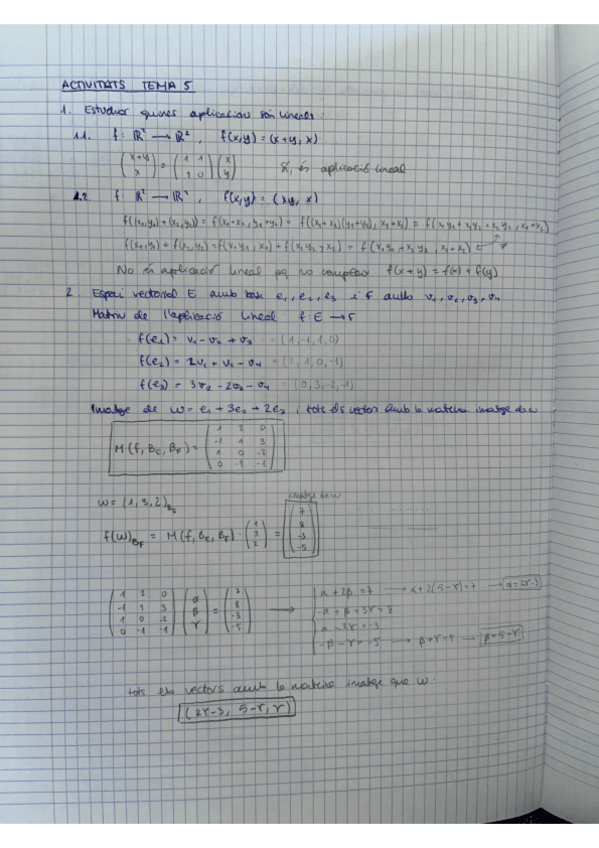 ACTIVITATS TEMA 5
1. Estudiar quines aplicacions són lineals:
1.1. f: ℝ² → ℝ², f(x,y) = (x+y, x)
(x+y / x) = (1 1 / 1 0) (x / y) Sí, és aplicació lineal
1.2 f ℝ² → ℝ², f(x,y) = (xy, x)
No és aplicació lineal pq no compleix f(x+y) = f(x) + f(y)
2. Espai vectorial E amb base e₁, e₂, e₃ i F amb v₁, v₂, v₃, v₄
Matriu de l'aplicació lineal f: E → F
f(e₁) = v₁ - v₂ + v₃ = (1,-1,1,0)
f(e₂) = 2v₁ + v₂ - v₄ = (2,1,0,-1)
f(e₃) = 3v₂ - 2v₃ - v₄ = (0,3,-2,-1)
Imatge de w = e₁ + 3e₂ + 2e₃ i tots els vectors amb la mateixa imatge de w
M(f, B_E, B_F) = (1 2 0 / -1 1 3 / 1 0 -2 / 0 -1 -1)
imatge de w
w = (1,3,2)_{B_E}
f(w)_{B_F} = M(f, B_E, B_F) · (1 / 3 / 2) = (7 / 8 / -3 / -5)
(1 2 0 / -1 1 3 / 1 0 -2 / 0 -1 -1) (α / β / γ) = (7 / 8 / -3 / -5) →
α + 2β = 7 → α + 2(5-γ) = 7 → α = 2γ-3
-α + β + 3γ = 8
α - 2γ = -3
-β - γ = -5 → β + γ = 5 → β = 5-γ
tots els vectors amb la mateixa imatge que w:
(2γ-3, 5-γ, γ)